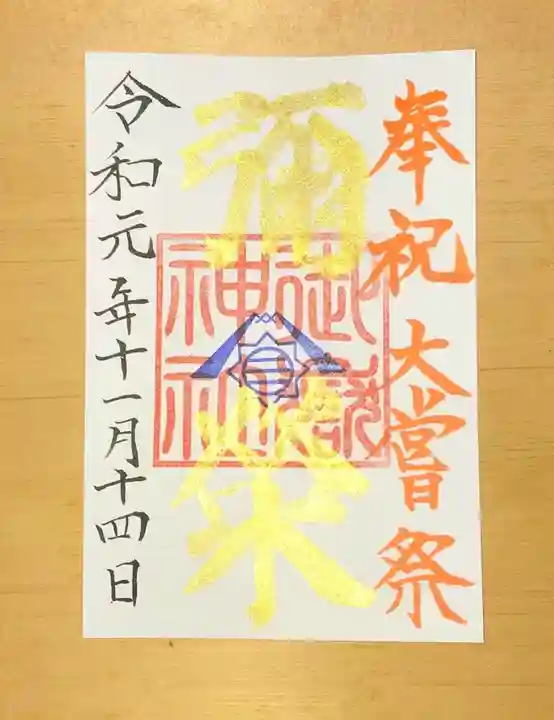 奉祝 大嘗祭
彌栄
神社
令和元年十一月十四日